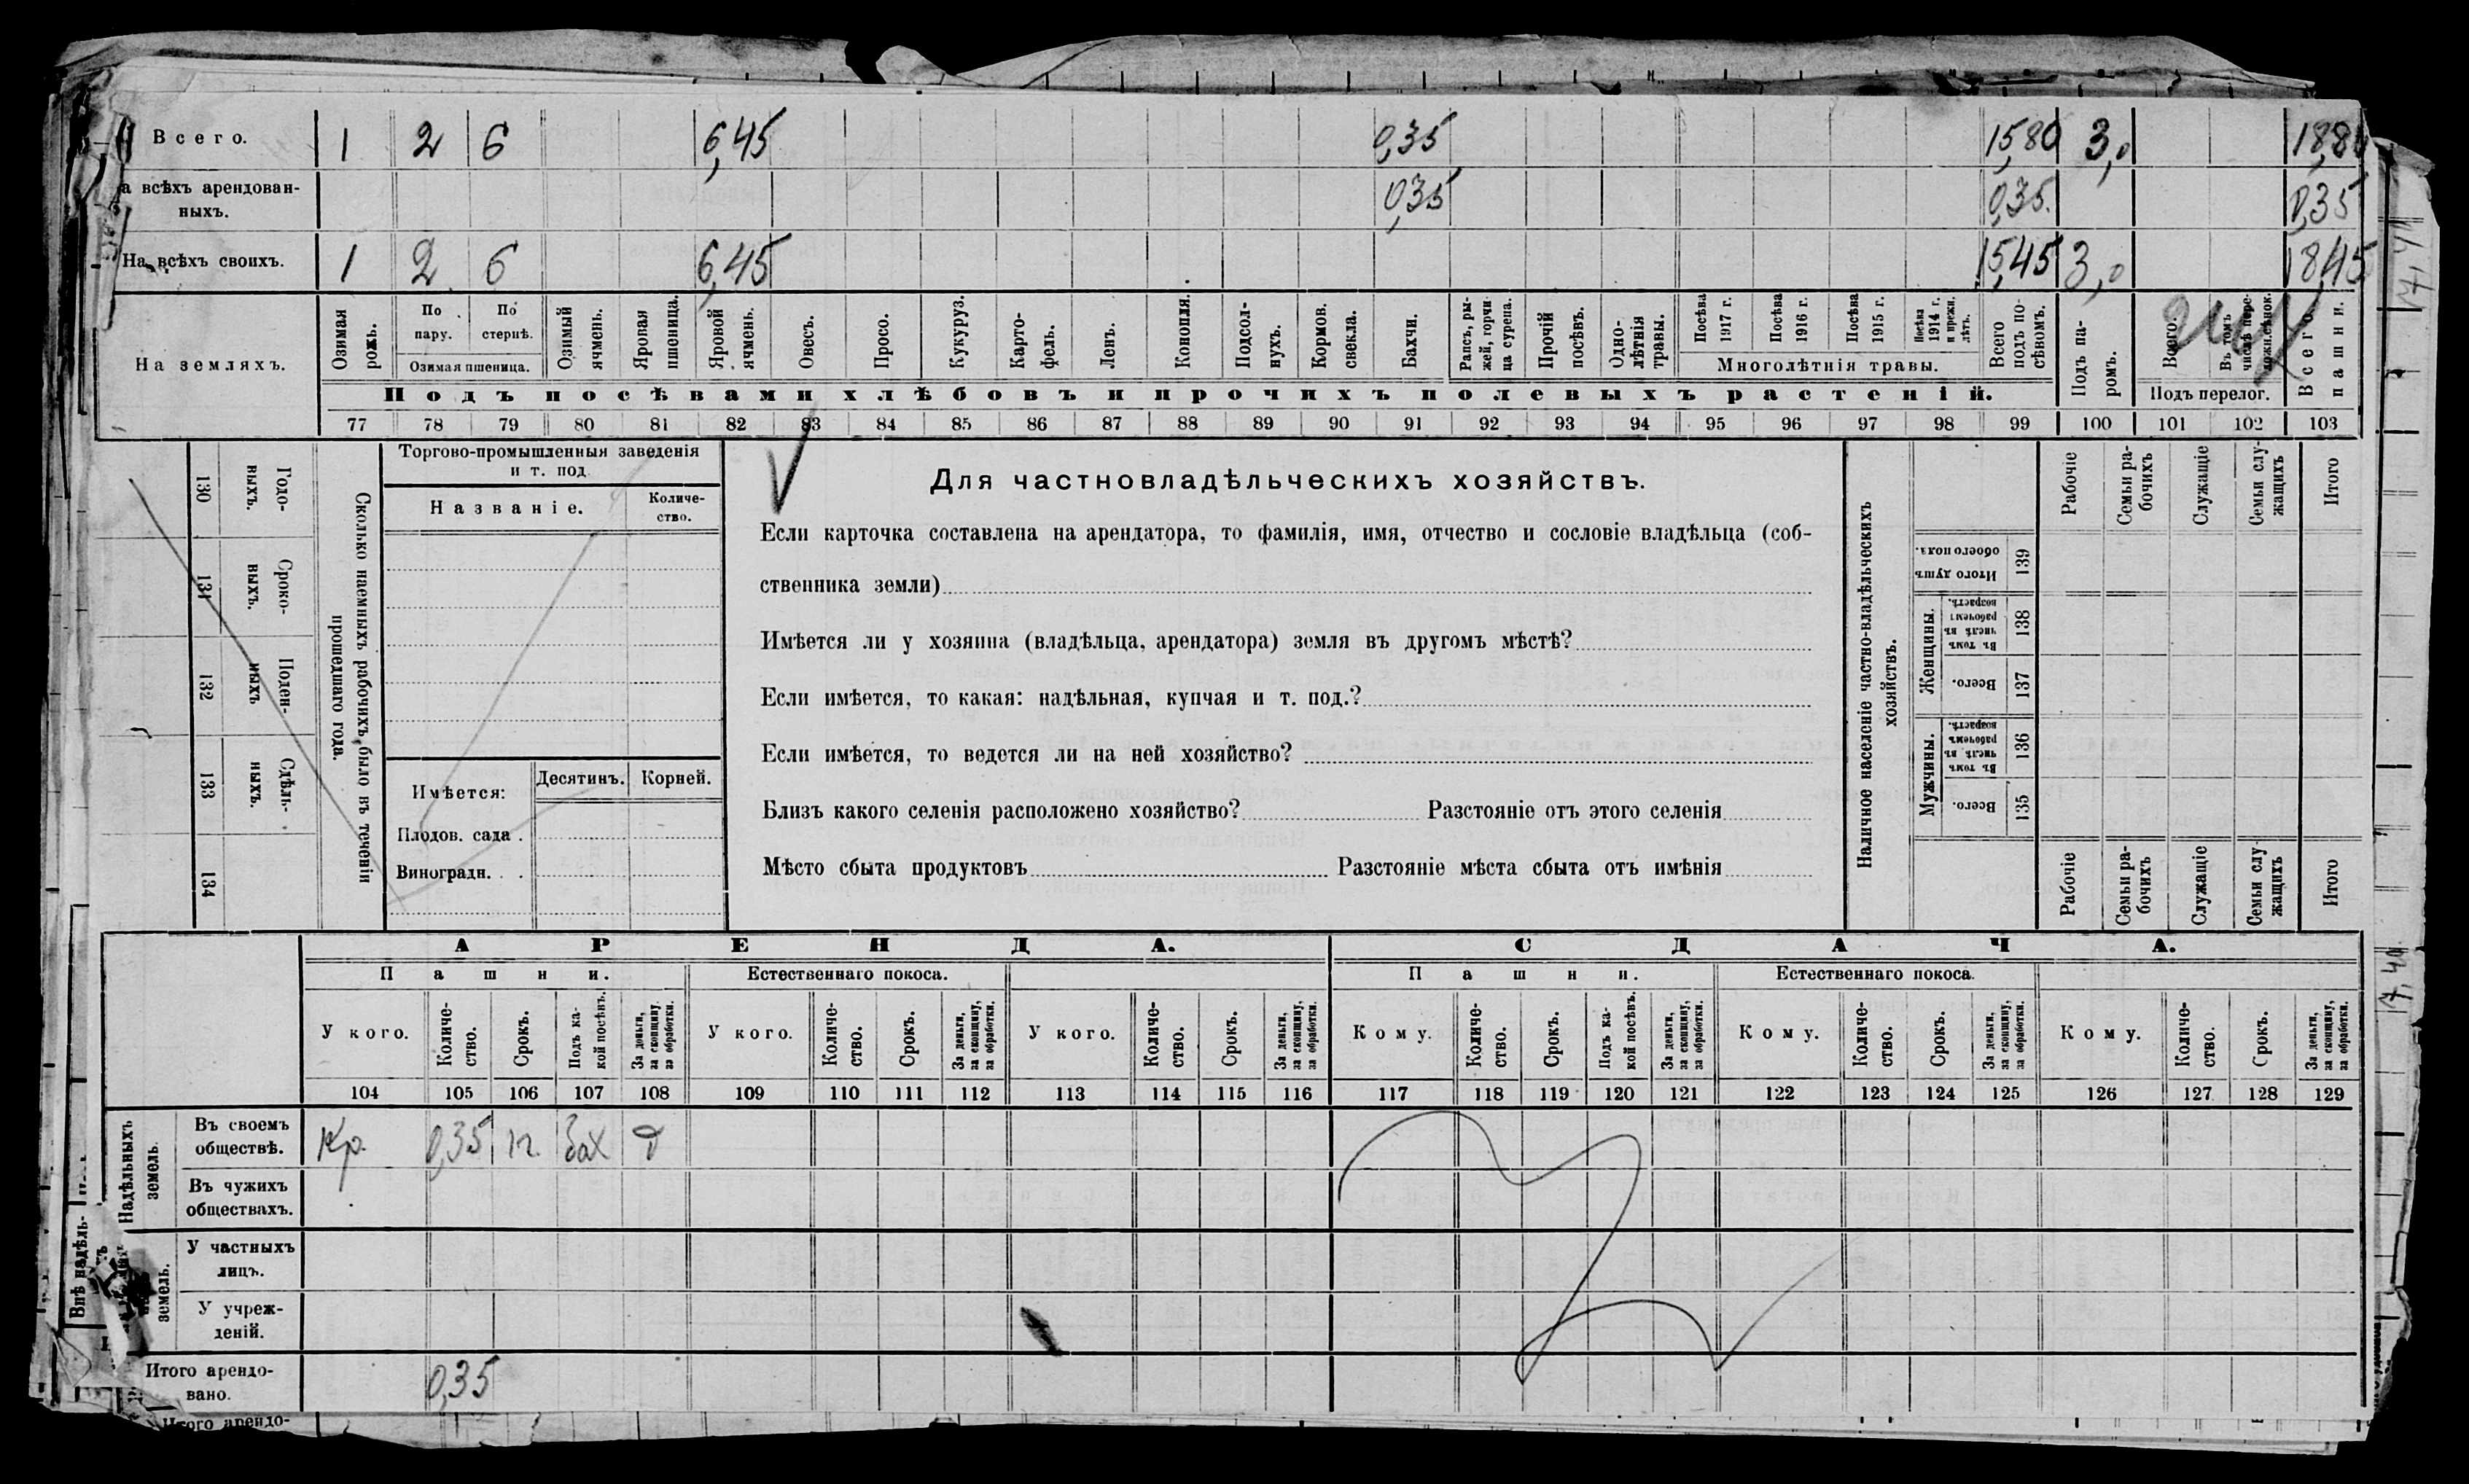 Всего. 1 2 6 6,45 0,35 15,80 3,0 18,80
а всѣхъ арендован-
ныхъ. 0,35 0,35. 0,35
На всѣхъ своихъ. 1 2 6 6,45 15,45 3,0 18,45
На земляхъ.
Озимая рожь.
По пару.
По стернѣ.
Озимая пшеница.
Озимый ячмень.
Яровая пшеница.
Яровой ячмень.
Овесъ.
Просо.
Кукуруз.
Карто-
фель.
Ленъ.
Конопля.
Подсол-
нухъ.
Кормов.
свекла.
Бахчи.
Рапсъ, ры-
жей, горчи-
ца сурепа.
Прочій
посѣвъ.
Одно-
лѣтнія
травы.
Посѣва
1917 г.
Посѣва
1916 г.
Посѣва
1915 г.
Посѣва
1914 г.
и прежн.
лѣтъ.
Многолѣтнія травы.
Всего
подъ по-
сѣвомъ.
Подъ па-
ромъ.
Всего.
Въ томъ
числѣ пере-
Подъ перелог.
Всего
пашни.
Подъ посѣвами хлѣбовъ и прочихъ полевыхъ растеній.
77 78 79 80 81 82 83 84 85 86 87 88 89 90 91 92 93 94 95 96 97 98 99 100 101 102 103
Сколько наемныхъ рабочихъ было въ теченіи
прошедшаго года.
Годо-
выхъ.
130
Сроко-
выхъ.
131
Поден-
ныхъ
132
Сдѣль-
ныхъ.
133
134
Торгово-промышленныя заведенія
и т. под
Названіе.
Количе-
ство.
Имѣется:
Десятинъ.
Корней.
Плодов. сада .
Виноградн. . .
Для частновладѣльческихъ хозяйствъ.
Если карточка составлена на арендатора, то фамилія, имя, отчество и сословіе владѣльца (соб-
ственника земли)
Имѣется ли у хозяина (владѣльца, арендатора) земля въ другомъ мѣстѣ?
Если имѣется, то какая: надѣльная, купчая и т. под.?
Если имѣется, то ведется ли на ней хозяйство?
Близъ какого селенія расположено хозяйство? Разстояніе отъ этого селенія
Мѣсто сбыта продуктовъ Разстояніе мѣста сбыта отъ имѣнія
Наличное населеніе частно-владѣльческихъ
хозяйствъ.
Рабочіе
Семьи ра-
бочихъ
Служащіе
Семьи слу-
жащихъ
Итого
Итого душъ
обоего пола.
139
Женщины.
Въ томъ
числѣ въ
рабочемъ
возрастѣ.
138
Всего.
137
Мужчины.
Въ томъ
числѣ въ
рабочемъ
возрастѣ.
136
Всего.
135
Рабочіе
Семьи ра-
бочихъ
Служащіе
Семьи слу-
жащихъ
Итого
АРЕНДА. СДАЧА.
Пашни. Естественнаго покоса. Пашни. Естественнаго покоса.
У кого.
Количе-
ство.
Срокъ.
Подъ ка-
кой посѣвъ.
За деньги,
за скопщину,
за обработки.
У кого.
Количе-
ство.
Срокъ.
За деньги,
за скопщину,
за обработки.
У кого.
Количе-
ство.
Срокъ.
За деньги,
за скопщину,
за обработки.
Кому.
Количе-
ство.
Срокъ.
Подъ ка-
кой посѣвъ.
За деньги,
за скопщину,
за обработки.
Кому.
Количе-
ство.
Срокъ.
За деньги,
за скопщину,
за обработки.
Кому.
Количе-
ство.
Срокъ.
За деньги,
за скопщину,
за обработки.
104 105 106 107 108 109 110 111 112 113 114 115 116 117 118 119 120 121 122 123 124 125 126 127 128 129
Надѣльныхъ
земель.
Въ своемъ
обществѣ. Кр. 0,35 1г. бах д
Въ чужихъ
обществахъ.
Внѣ надѣль-
земель.
У частныхъ
лицъ.
У учреж-
деній.
Итого арендо-
вано. 0,35
Итого арендо-